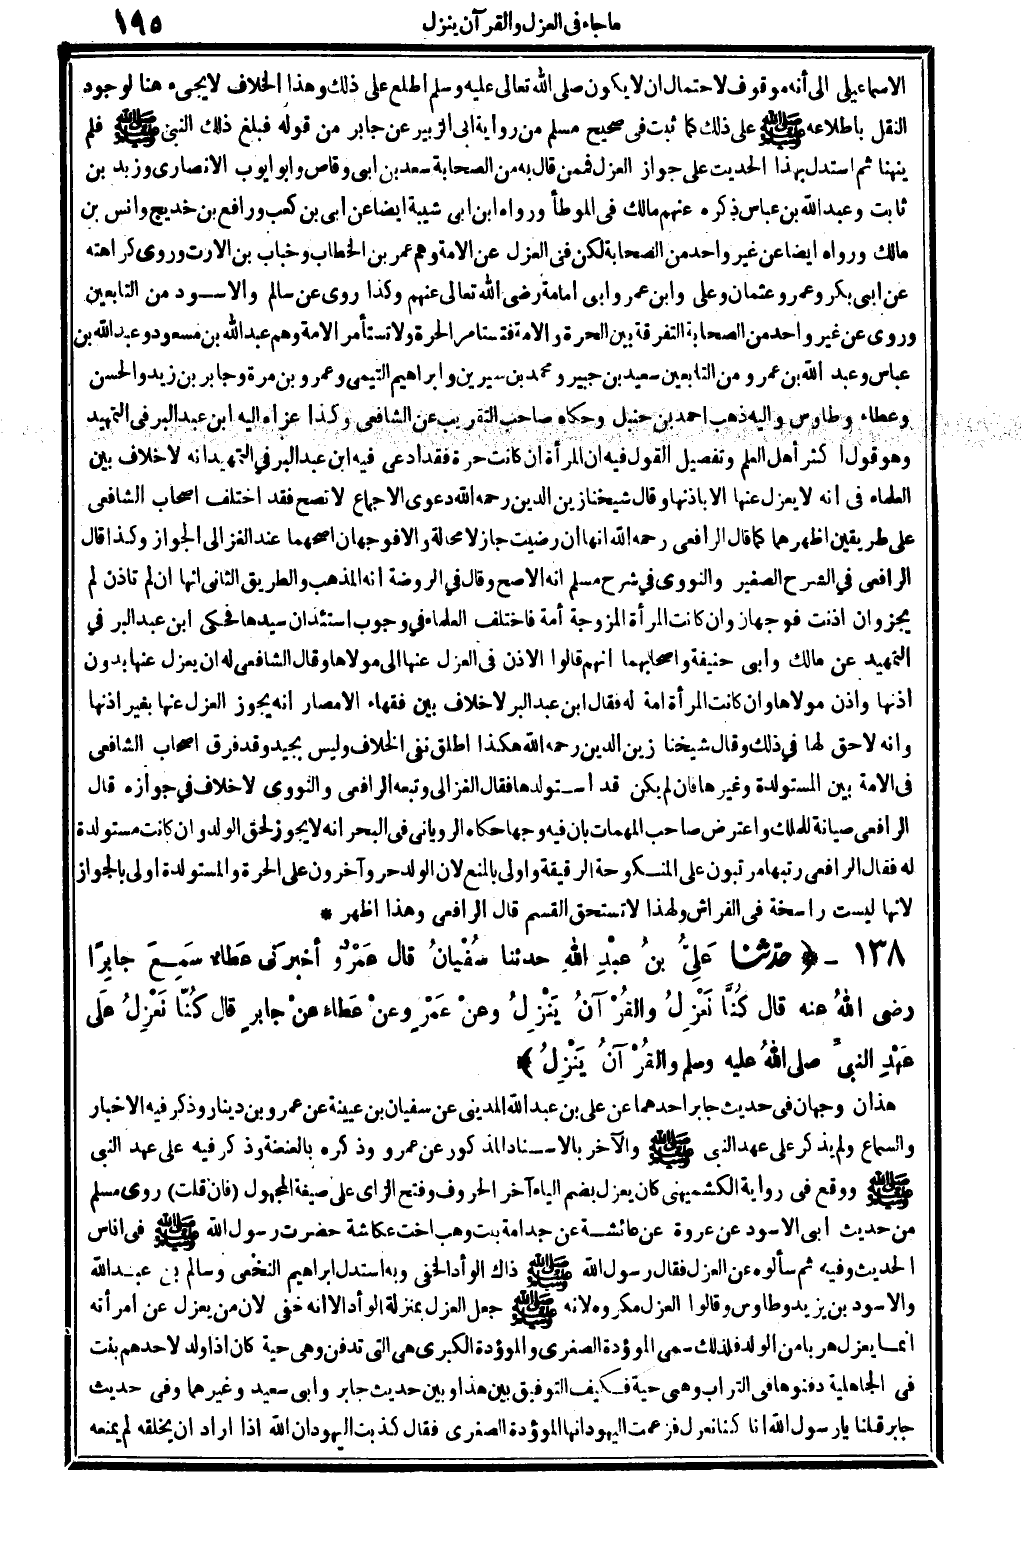 ما جاء فى العزل والقرآن ينزل ١٩٥
الاسماعيلى الى أنه موقوف لاحتمال ان لا يكون صلى الله تعالى عليه وسلم اطلع على ذلك وهذا الخلاف لا يجىء هنا لوجود
النقل باطلاعه ﷺ على ذلك كما ثبت فى صحيح مسلم من رواية ابى الزبير عن جابر من قوله فبلغ ذلك النبى ﷺ فلم
ينهنا ثم استدل بهذا الحديث على جواز العزل فممن قال به من الصحابة سعد بن ابى وقاص وابو ايوب الانصارى وزيد بن
ثابت وعبد الله بن عباس ذكره عنهم مالك فى الموطأ ورواه ابن ابى شيبة ايضا عن ابى بن كعب ورافع بن خديج وانس بن
مالك ورواه ايضا عن غير واحد من الصحابة لكن فى العزل عن الامة وهم عمر بن الخطاب وخباب بن الارت وروى كراهته
عن ابى بكر وعمر وعثمان وعلى وابن عمر وابى امامة رضى الله تعالى عنهم وكذا روى عن سالم والاسود من التابعين
وروى عن غير واحد من الصحابة التفرقة بين الحرة والامة فتستامر الحرة ولا تستأمر الامة وهم عبد الله بن مسعود وعبد الله بن
عباس وعبد الله بن عمر ومن التابعين سعيد بن جبير ومحمد بن سيرين وابراهيم التيمى وعمرو بن مرة وجابر بن زيد والحسن
وعطاء وطاوس واليه ذهب احمد بن حنبل وحكاه صاحب التقريب عن الشافعى وكذا عزاه اليه ابن عبد البر فى التمهيد
وهو قول اكثر أهل العلم وتفصيل القول فيه ان المرأة ان كانت حرة فقد ادعى فيه ابن عبد البر في التمهيد انه لا خلاف بين
العلماء فى انه لا يعزل عنها الا باذنها وقال شيخنا زين الدين رحمه الله دعوى الاجماع لا تصح فقد اختلف اصحاب الشافعى
على طريقين اظهرهما كما قال الرافعى رحمه الله انها ان رضيت جاز لا محالة والا فوجهان اصحهما عند الغزالى الجواز وكذا قال
الرافعى في الشرح الصغير والنووى في شرح مسلم انه الاصح وقال في الروضة انه المذهب والطريق الثانى انها ان لم تاذن لم
يجز وان اذنت فوجهان وان كانت المرأة المزوجة أمة فاختلف العلماء في وجوب استئذان سيدها فحكى ابن عبد البر في
التمهيد عن مالك وأبى حنيفة واصحابهما انهم قالوا الاذن فى العزل عنها الى مولاها وقال الشافعى له ان يعزل عنها بدون
اذنها واذن مولاها وان كانت المرأة امة له فقال ابن عبد البر لا خلاف بين فقهاء الامصار انه يجوز العزل عنها بغير اذنها
وانه لا حق لها في ذلك وقال شيخنا زين الدين رحمه الله هكذا اطلق نفى الخلاف وليس بجيد وقد فرق اصحاب الشافعى
فى الامة بين المستولدة وغيرها فان لم يكن قد استولدها فقال الغزالى وتبعه الرافعى والنووى لا خلاف في جوازه قال
الرافعى صيانة للملك واعترض صاحب المهمات بان فيه وجها حكاه الرويانى فى البحر انه لا يجوز لحق الولد وان كانت مستولدة
له فقال الرافعى رتبها مرتبون على المنكوحة الرقيقة واولى بالمنع لان الولد حر وآخرون على الحرة والمستولدة اولى بالجواز
لانها ليست راسخة فى الفراش ولهذا لا تستحق القسم قال الرافعى وهذا اظهر *
١٣٨ - ﴿ حَدَّثَنَا عَلِيُّ بنُ عَبْدِ اللهِ حدثنا سُفْيانُ قال عَمْرٌو أخبرَنى عَطاء سَمِعَ جابِرًا
رضى اللهُ عنه قال كُنَّا نَعْزِلُ والقُرْآنُ يَنْزِلُ وعنْ عَمْرٍ وعنْ عَطاءٍ عنْ جابرٍ قال كُنَّا نَعْزِلُ عَلَى
عَهْدِ النبىِّ صلى اللهُ عليه وسلم والقُرْآنُ يَنْزِلُ ﴾
هذان وجهان فى حديث جابر احدهما عن على بن عبد الله المدينى عن سفيان بن عيينة عن عمرو بن دينار وذكر فيه الاخبار
والسماع ولم يذكر على عهد النبى ﷺ والآخر بالاسناد المذكور عن عمرو وذكره بالعنعنة وذكر فيه على عهد النبى
ﷺ ووقع فى رواية الكشميهنى كان يعزل بضم الياء آخر الحروف وفتح الزاى على صيغة المجهول (فان قلت) روى مسلم
من حديث ابى الاسود عن عروة عن عائشة عن جدامة بنت وهب اخت عكاشة حضرت رسول الله ﷺ فى اناس
الحديث وفيه ثم سألوه عن العزل فقال رسول الله ﷺ ذاك الوأد الخفى وبه استدل ابراهيم النخعى وسالم بن عبد الله
والاسود بن يزيد وطاوس وقالوا العزل مكروه لانه ﷺ جعل العزل بمنزلة الوأد الا انه خفى لان من يعزل عن امرأته
انما يعزل هربا من الولد فلذلك سمى الموؤدة الصغرى والموؤدة الكبرى هى التى تدفن وهى حية كان اذا ولد لاحدهم بنت
فى الجاهلية دفنوها فى التراب وهى حية فكيف التوفيق بين هذا وبين حديث جابر وابى سعيد وغيرهما وفى حديث
جابر قلنا يا رسول الله انا كنا نعزل فزعمت اليهود انها الموؤدة الصغرى فقال كذبت اليهود ان الله اذا اراد ان يخلقه لم يمنعه